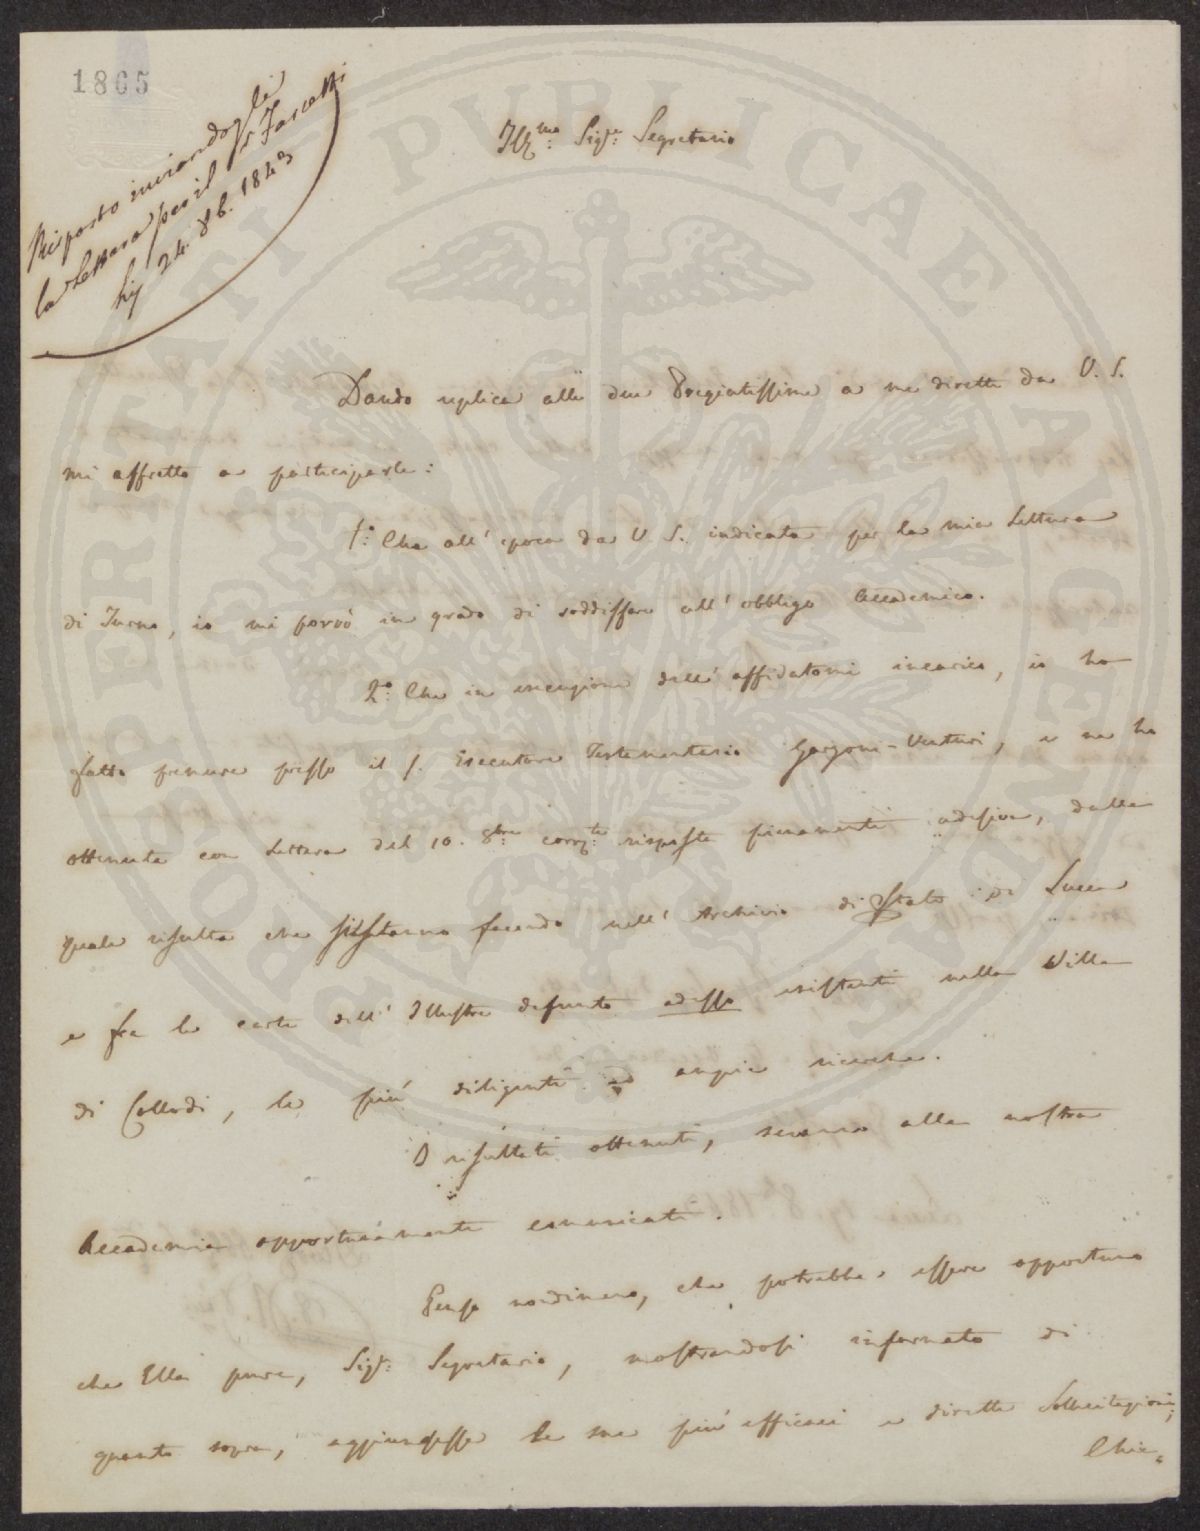 1865
Risposto inviandogli
la Lettera per il Sr Tarcetti
li 24. 8b. 1843
Illmo: Sigre: Segretario
Dando replica alle due Pregiatissime a me dirette da V. S.
mi affretto a participarle:
1.° Che all' epoca da V S. indicata per la mia Lettura
di Turno, io mi porrò in grado di soddisfare all' obbligo Accademico.
2.° Che in esecuzione dell' affidatomi incarico, io ho
fatto premure presso il S. Esecutore Testamentario Garzoni-Venturi, e ne ho
ottenuta con Lettera del 10. 8bre corrte: risposta pienamente adesiva, dalla
quale risulta che si stanno facendo nell' Archivio di Stato di Lucca
e fra le carte dell' Illustre defunto adesso esistenti nella Villa
di Collodi, le più diligenti ed ampie ricerche.
I risultati ottenuti, saranno alla nostra
Accademia opportunamente comunicati.
Penso nondimeno, che potrebbe essere opportuno
che Ella pure, Sigr: Segretario, mostrandosi informato di
quanto sopra, aggiungesse le sue più efficaci e dirette Sollecitazioni;
Chie=
PROSPERITATI PVBLICAE AVGENDAE